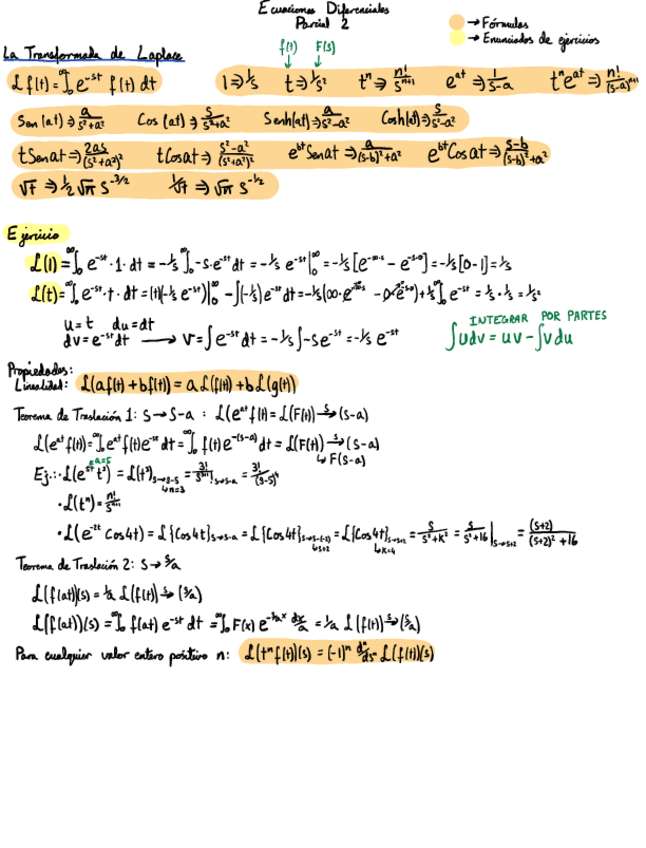 Ecuaciones Diferenciales
Parcial 2
→ Fórmulas
→ Enunciados de ejercicios
La Transformada de Laplace
f(t) F(s)
ℒ f(t) = ∫₀^∞ e^{-st} f(t) dt
1 ⇒ 1/s t ⇒ 1/s² tⁿ ⇒ n!/s^{n+1} e^{at} ⇒ 1/(s-a) tⁿe^{at} ⇒ n!/(s-a)^{n+1}
Sen(at) ⇒ a/(s²+a²) Cos(at) ⇒ s/(s²+a²) Senh(at) ⇒ a/(s²-a²) Cosh(at) ⇒ s/(s²-a²)
tSenat ⇒ 2as/(s²+a²)² tCosat ⇒ (s²-a²)/(s²+a²)² e^{bt}Senat ⇒ a/((s-b)²+a²) e^{bt}Cosat ⇒ (s-b)/((s-b)²+a²)
√t ⇒ 1/2 √π s^{-3/2} 1/√t ⇒ √π s^{-1/2}
Ejercicio
ℒ(1) = ∫₀^∞ e^{-st}·1·dt = -1/s ∫₀^∞ -s·e^{-st}dt = -1/s e^{-st}|₀^∞ = -1/s[e^{-∞·s} - e^{-s·0}] = -1/s[0-1] = 1/s
ℒ(t) = ∫₀^∞ e^{-st}·t·dt = (t)(-1/s e^{-st})|₀^∞ - ∫(-1/s)e^{-st}dt = -1/s(∞·e^{-∞s} - 0·e^{-s·0}) + 1/s ∫₀^∞ e^{-st} = 1/s · 1/s = 1/s²
u = t du = dt
dv = e^{-st}dt → v = ∫e^{-st}dt = -1/s ∫-se^{-st} = -1/s e^{-st}
INTEGRAR POR PARTES
∫udv = uv - ∫vdu
Propiedades:
Linealidad: ℒ(af(t) + bf(t)) = aℒ(f(t)) + bℒ(g(t))
Teorema de Traslación 1: S → S-a : ℒ(e^{at}f(t) = ℒ(F(t)) →^s (s-a)
ℒ(e^{at}f(t)) = ∫₀^∞ e^{at}f(t)e^{-st}dt = ∫₀^∞ f(t)e^{-(s-a)}dt = ℒ(F(t)) →^s (s-a)
↳ F(s-a)
a=5
Ej.: · ℒ(e^{5t}t³) = ℒ(t³)_{s→s-5} = 3!/s^{3+1}|_{s→s-a} = 3!/(s-5)⁴
↳ n=3
· ℒ(tⁿ) = n!/s^{n+1}
· ℒ(e^{-2t}Cos4t) = ℒ{Cos4t}_{s→s-a} = ℒ{Cos4t}_{s→s-(-2)} = ℒ{Cos4t}_{s→s+2} = s/(s²+k²) = s/(s²+16)|_{s→s+2} = (s+2)/((s+2)²+16)
↳ s+2 ↳ k=4
Teorema de Traslación 2: S → s/a
ℒ(f(at))(s) = 1/a ℒ(f(t)) →^s (s/a)
ℒ(f(at))(s) = ∫₀^∞ f(at) e^{-st} dt = ∫₀^∞ F(x) e^{-s/a x} dx/a = 1/a ℒ(f(t)) →^s (s/a)
Para cualquier valor entero positivo n: ℒ(tⁿf(t))(s) = (-1)ⁿ dⁿ/dsⁿ ℒ(f(t))(s)